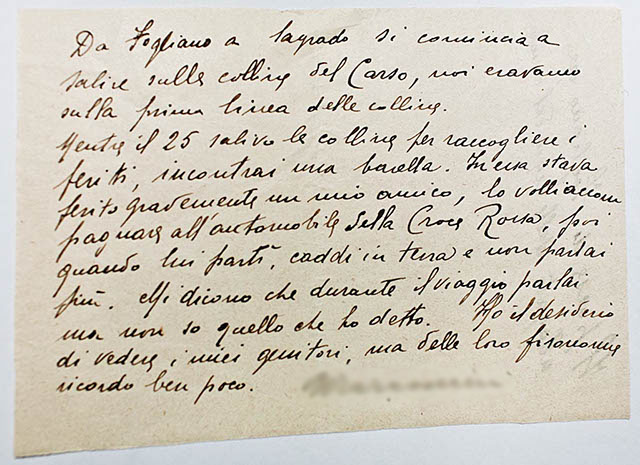 Da Fogliano a Sagrado si comincia a
salire sulle colline del Carso, noi eravamo
sulla prima linea delle colline.
Mentre il 25 salivo le colline per raccogliere i
feriti, incontrai una barella. In essa stava
ferito gravemente un mio amico, lo volli accom
pagnare all'automobile della Croce Rossa, poi
quando lui partì, caddi in terra e non parlai
più. Mi dicono che durante il viaggio parlai
ma non so quello che ho detto. Ho il desiderio
di vedere i miei genitori, ma delle loro fisonomie
ricordo ben poco.